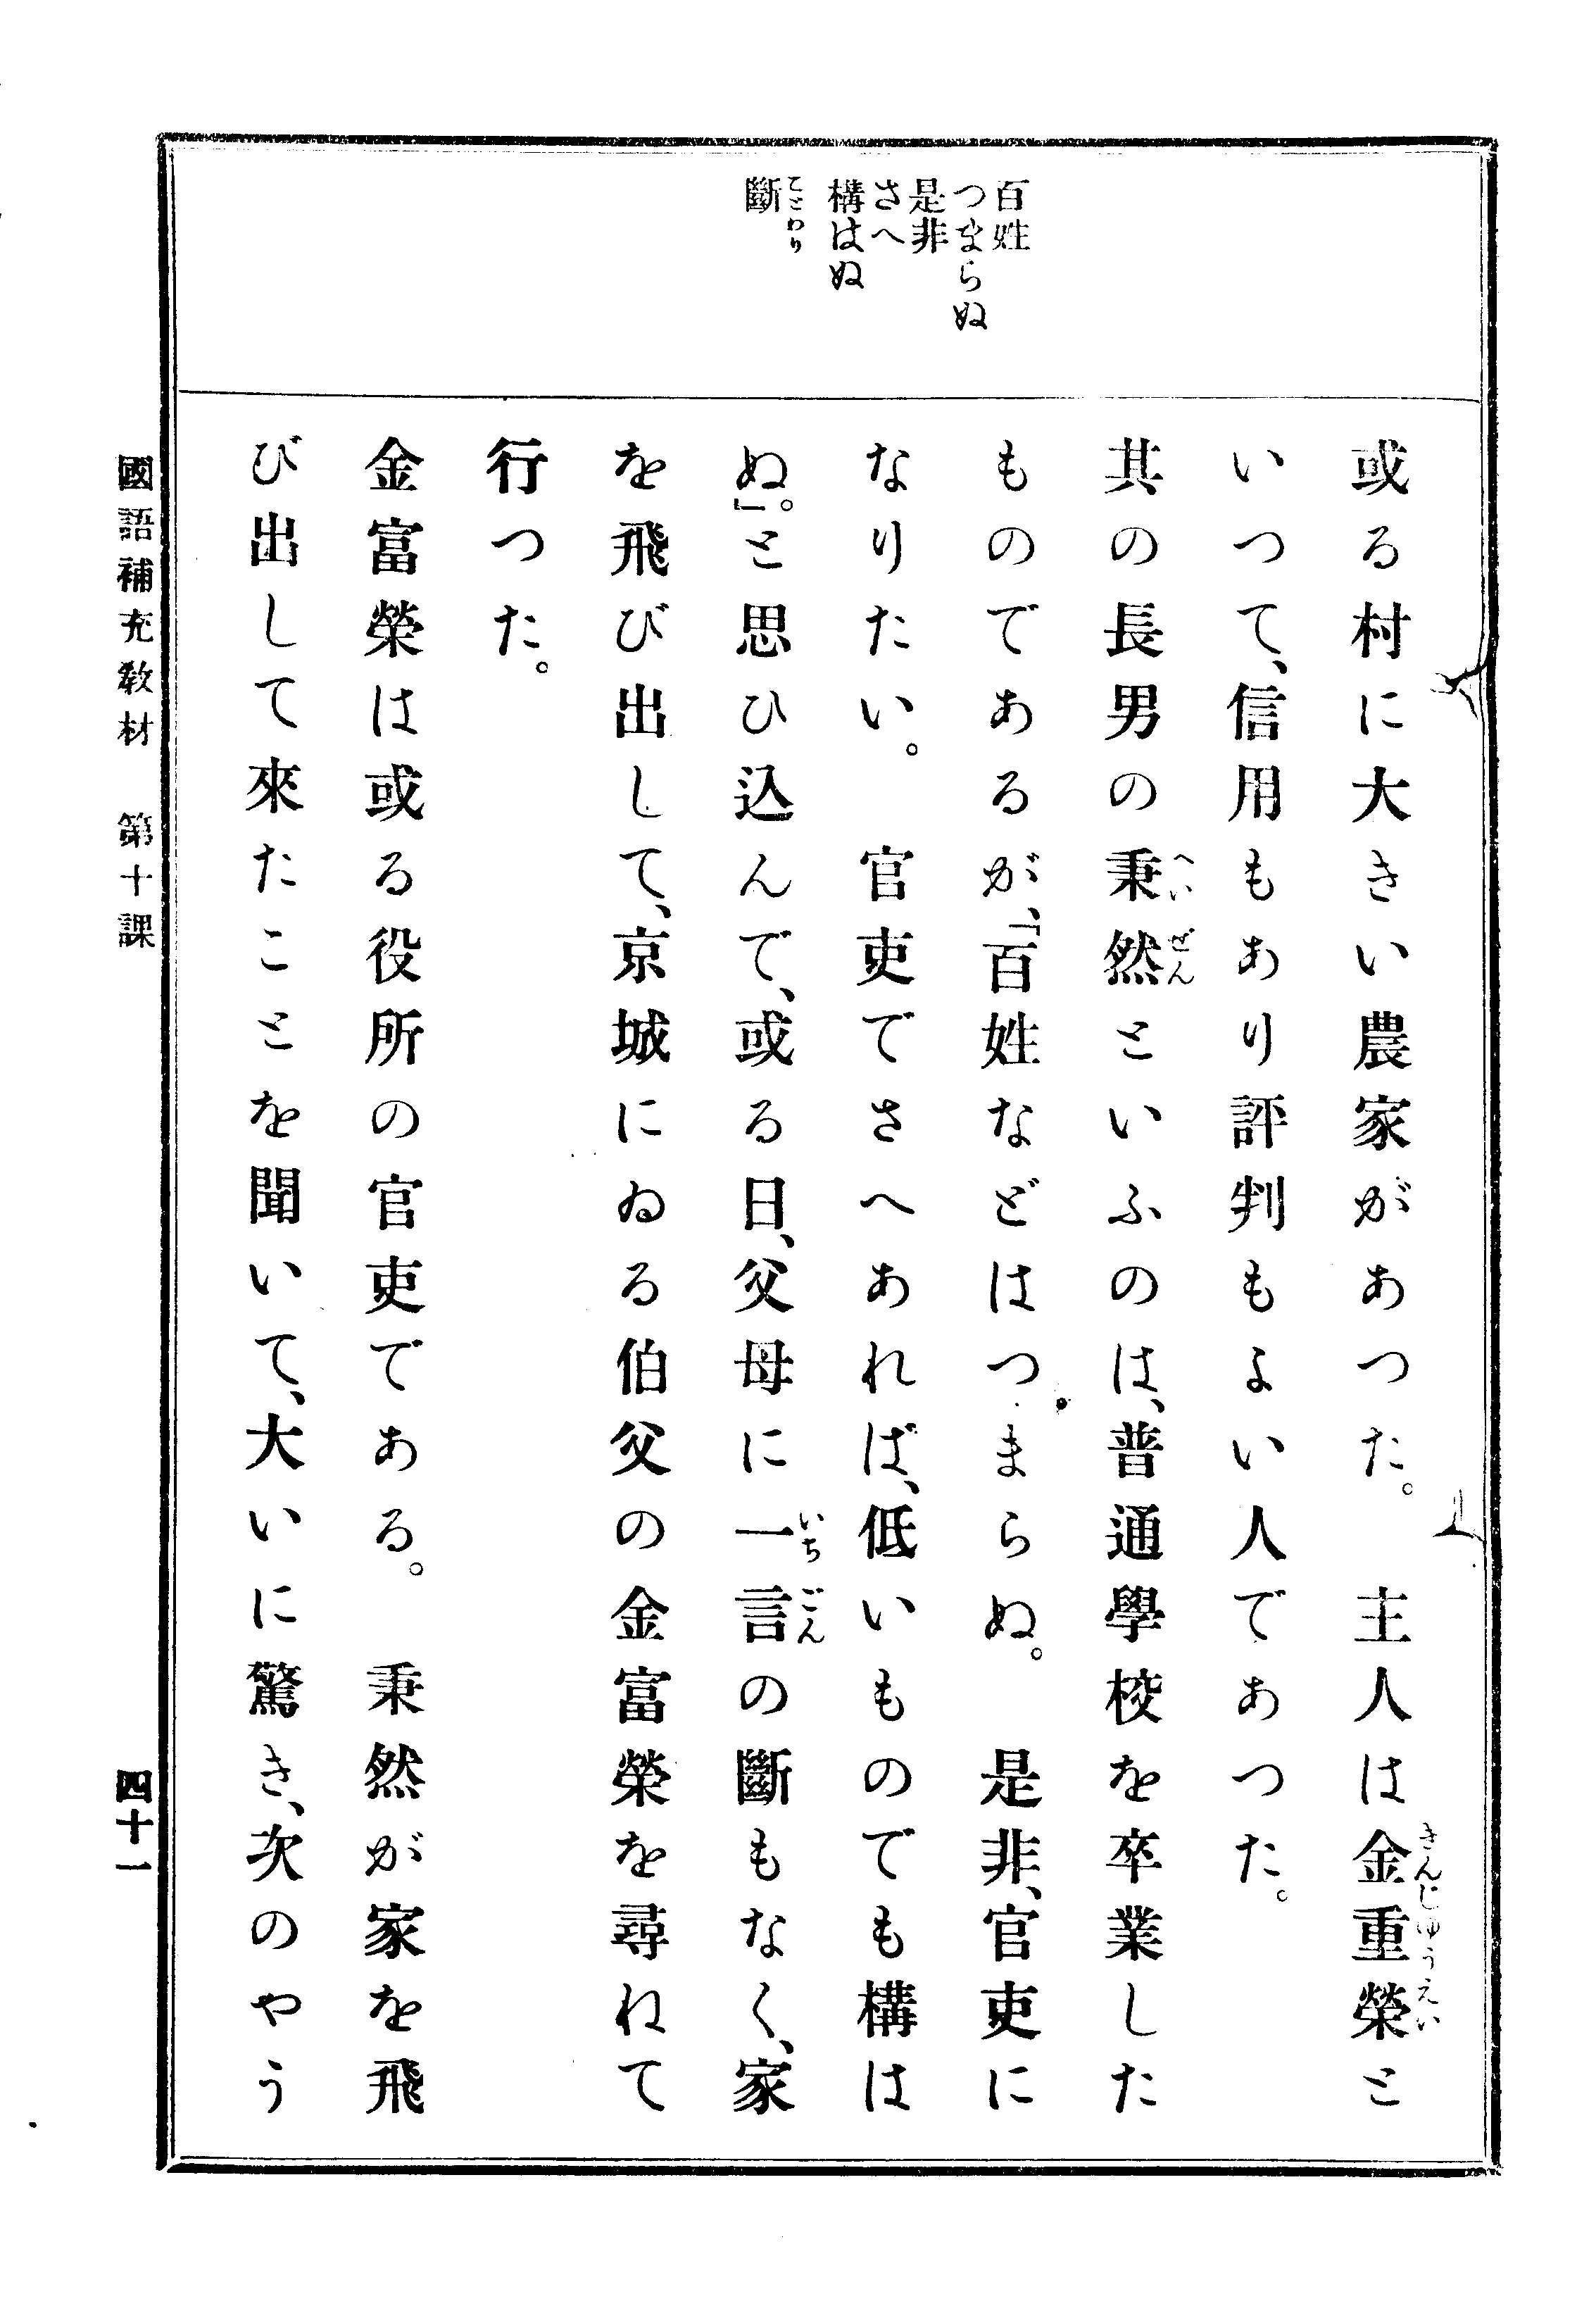 百姓
つまらぬ
是非
さへ
構はぬ
斷
ことわり
或る村に大きい農家があつた。　主人は金重榮と
きんじゆうえい
いつて、信用もあり評判もよい人であつた。
其の長男の秉然といふのは、普通學校を卒業した
へいぜん
ものであるが、「百姓などはつまらぬ。　是非、官吏に
なりたい。　官吏でさへあれば、低いものでも構は
ぬ。」と思ひ込んで、或る日、父母に一言の斷もなく、家
いちごん
を飛び出して、京城にゐる伯父の金富榮を尋ねて
行つた。
金富榮は或る役所の官吏である。　秉然が家を飛
び出して來たことを聞いて、大いに驚き、次のやう
國語補充教材　第十課
四十一